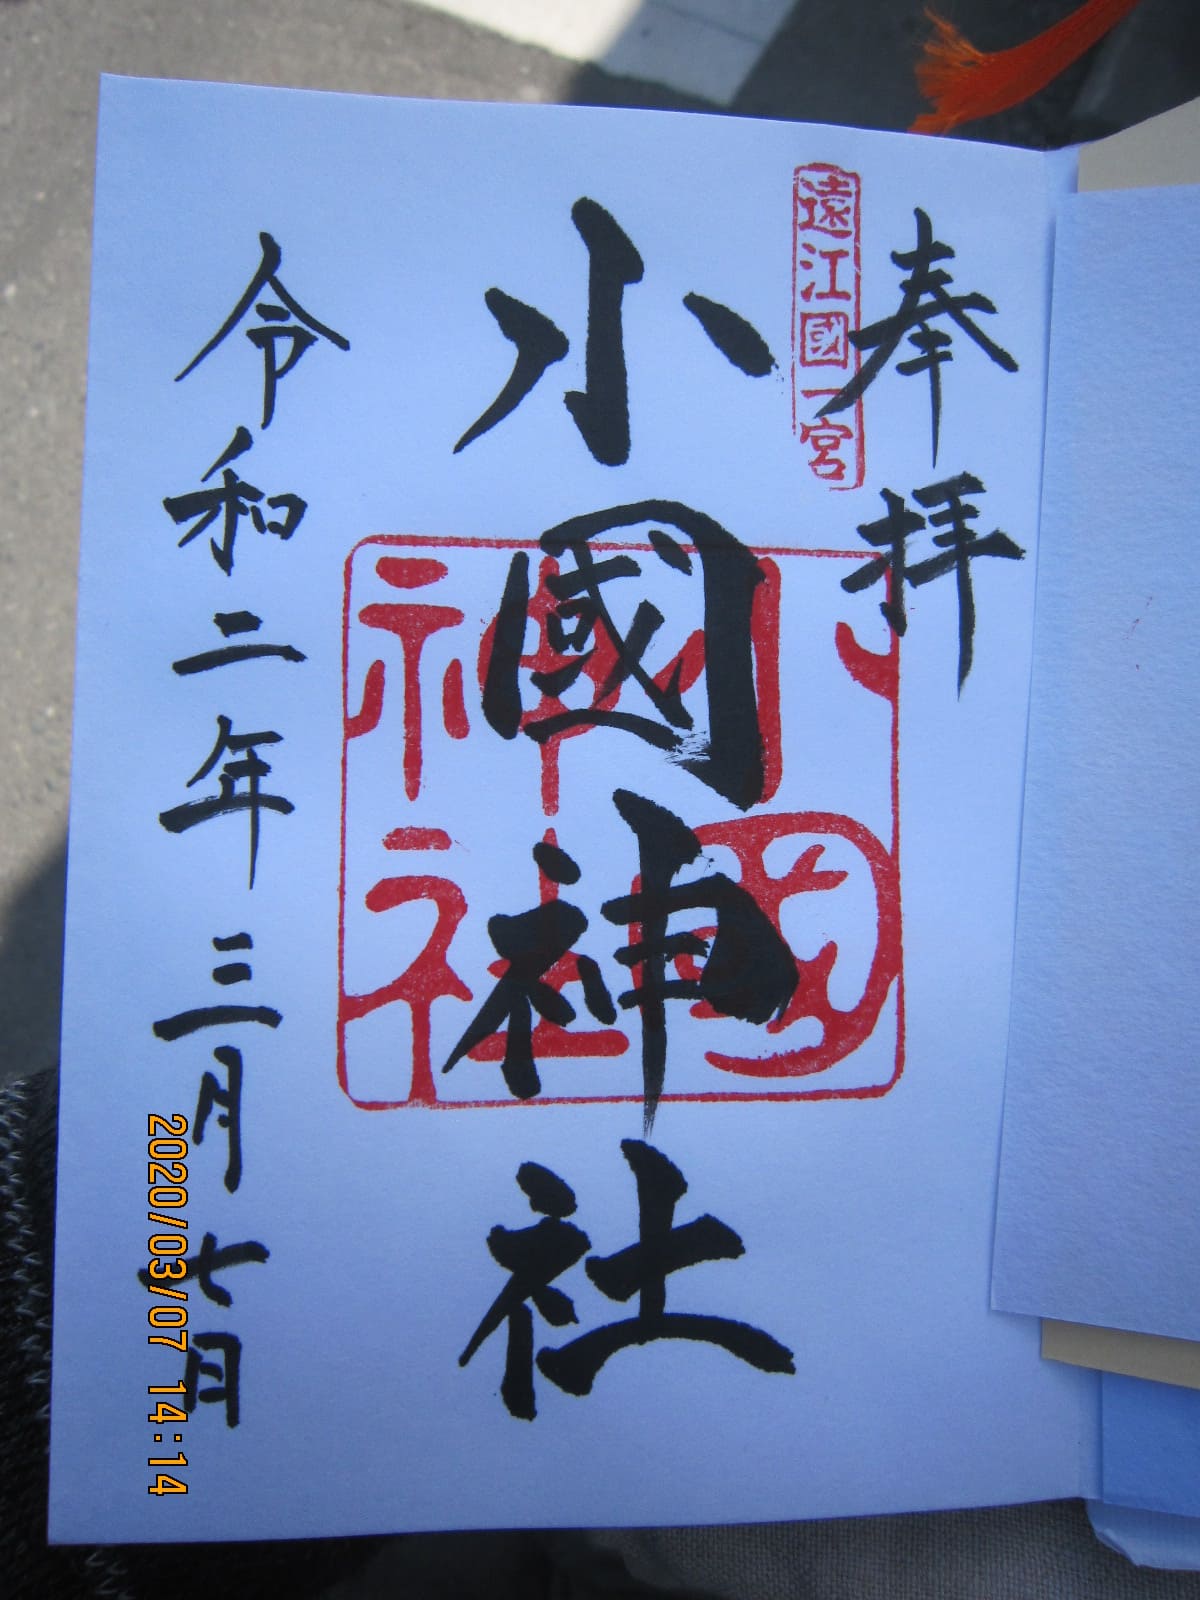 奉拝
遠江國一宮
小國神社
小國神社
令和二年三月七日
2020/03/07 14:14